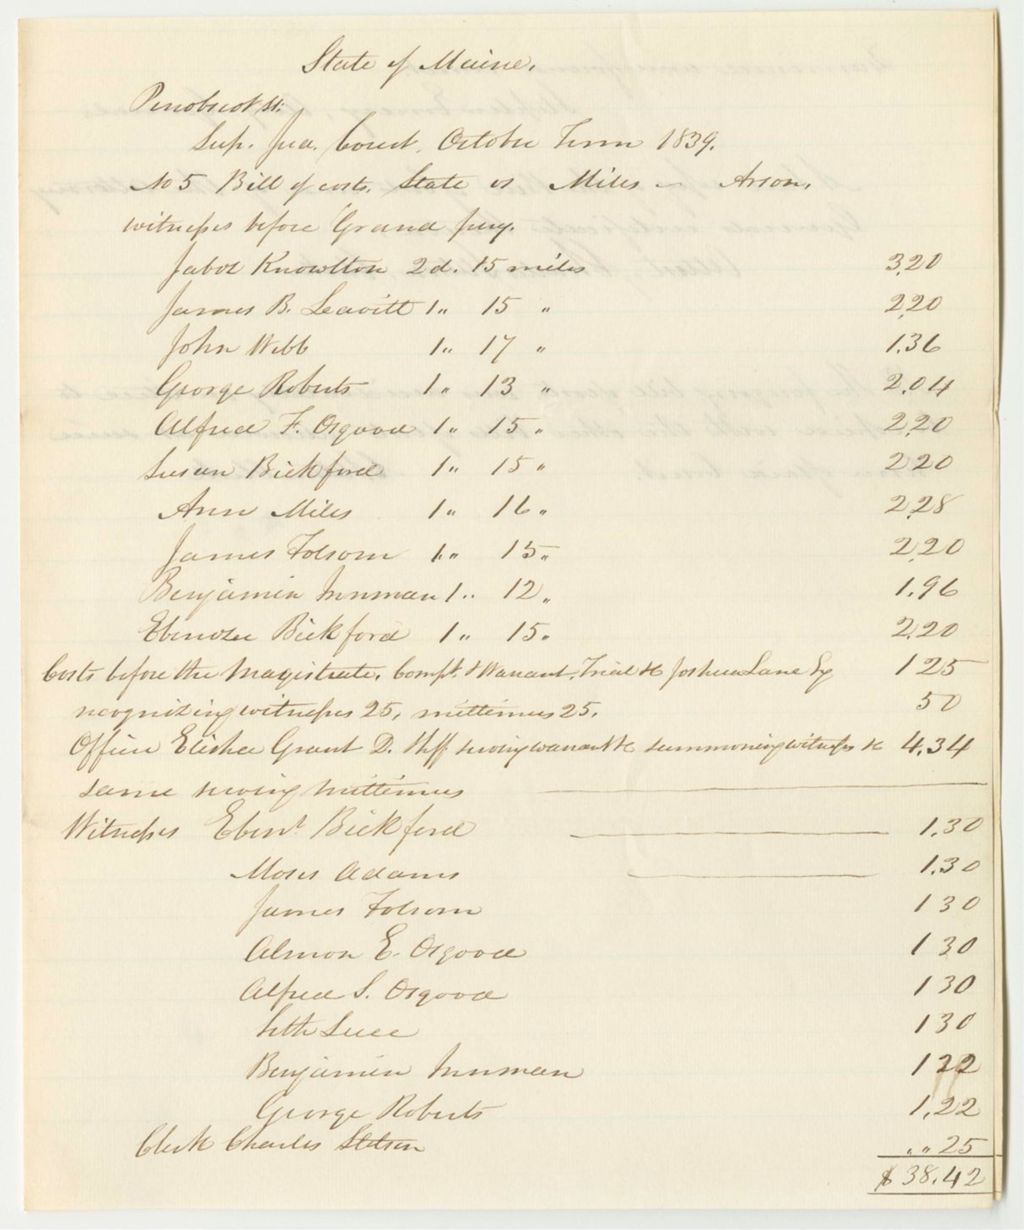 State of Maine.
Penobscot ss.
Sup. Jud. Court. October Term 1839.
No 5 Bill of costs. State vs Miles — Arson.
witnesses before Grand jury.
Jabez Knowlton 2 d. 15 miles 3.20
James B. Leavitt 1 " 15 " 2.20
John Webb 1 " 17 " 1.36
George Roberts 1 " 13 " 2.04
Alfred F. Osgood 1 " 15 " 2.20
Susan Bickford 1 " 15 " 2.20
Ann Miles 1 " 16 " 2.28
James Folsom 1 " 15 " 2.20
Benjamin Innman 1 " 12 " 1.96
Ebenezer Bickford 1 " 15 " 2.20
Costs before the Magistrate. Compt. & Warrant, Trial &c Joshua Lane Esq 1 25
recognizing witnesses 25, mittimus 25. 50
Officer Elisha Grant D. Shff serving warrant &c summoning witnesses &c 4.34
same serving mittimus
Witnesses Ebenr Bickford 1.30
Moses Adams 1.30
James Folsom 1 30
Almon E. Osgood 1 30
Alfred S. Osgood 1 30
Seth Luce 1 30
Benjamin Innman 1 22
George Roberts 1.22
Clerk Charles Stetson " " 25
$ 38.42